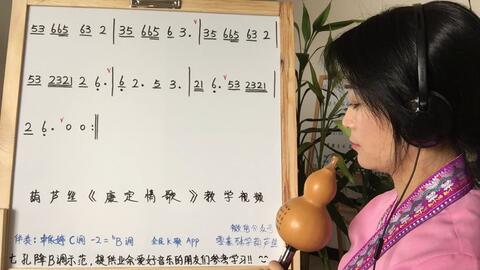 53 665 63 2 | 35 665 6 3. ∨ | 35 665 63 2 |
53 2321 2 6. ∨ | 6 2. 5 3. | 21 6. ∨ 53 2321
2 6. ∨ 0 0 :‖
葫芦丝《康定情歌》教学视频
C调 -2=ᵇB调 全民K歌 App
七孔降B调示范，提供业余爱好音乐的朋友们参考学习!!